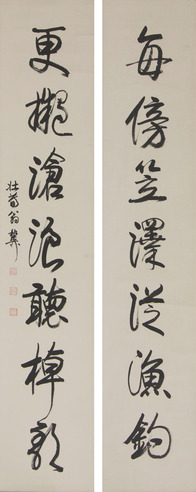 每傍笠澤從漁釣
更擬滄浪聽棹歌